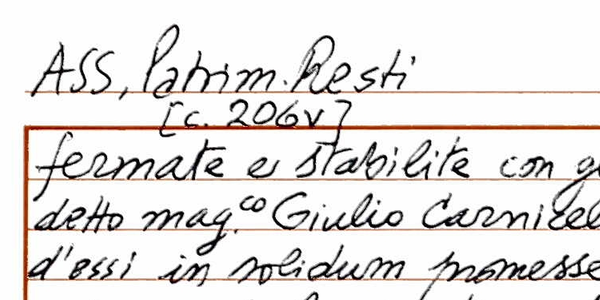 ASS, Patrim. Resti
[c. 206v]
fermate e stabilite con
detto mag.co Giulio
d'essi in solidum promesse